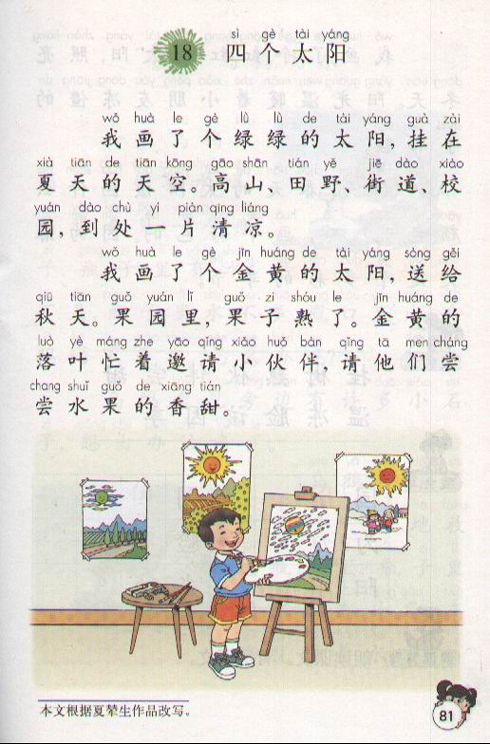 sì gè tài yáng
18 四个太阳
wǒ huà le gè lǜ lǜ de tài yáng guà zài
我画了个绿绿的太阳，挂在
xià tiān de tiān kōng gāo shān tián yě jiē dào xiào
夏天的天空。高山、田野、街道、校
yuán dào chù yí piàn qīng liáng
园，到处一片清凉。
wǒ huà le gè jīn huáng de tài yáng sòng gěi
我画了个金黄的太阳，送给
qiū tiān guǒ yuán lǐ guǒ zi shóu le jīn huáng de
秋天。果园里，果子熟了。金黄的
luò yè máng zhe yāo qǐng xiǎo huǒ bàn qǐng tā men cháng
落叶忙着邀请小伙伴，请他们尝
chang shuǐ guǒ de xiāng tián
尝水果的香甜。
本文根据夏辇生作品改写。
81